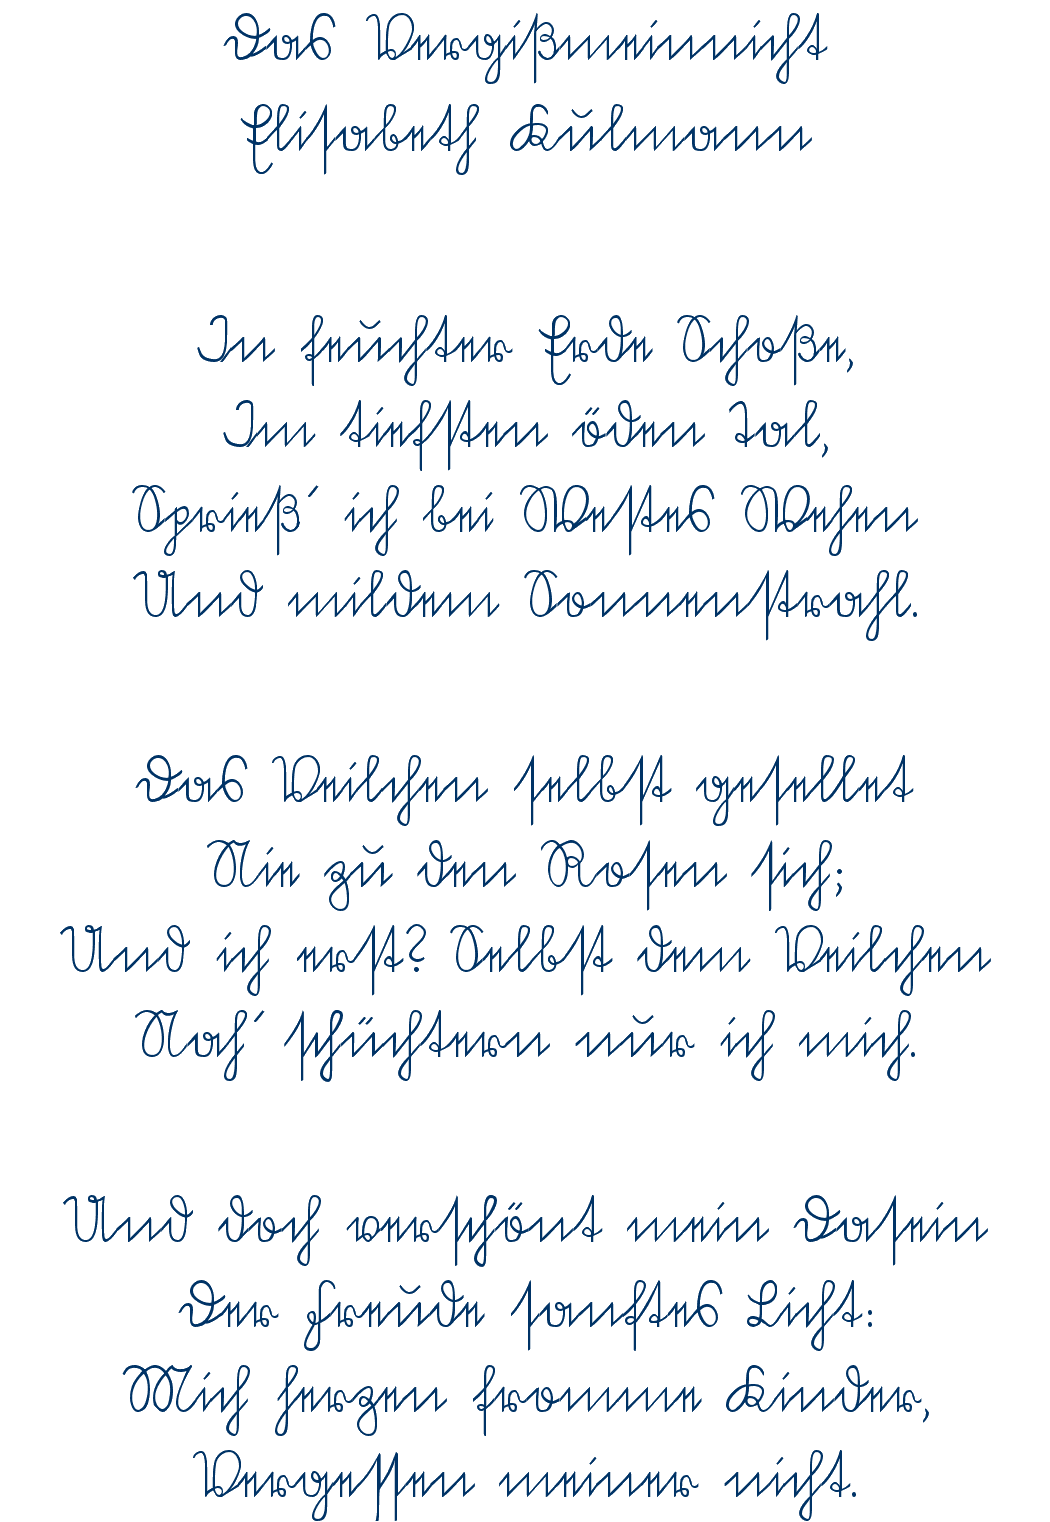 Das Vergißmeinnicht
Elisabeth Kulmann
In feuchter Erde Schoße,
Im tiefsten öden Tal,
Sprieß´ ich bei Westes Wehen
Und mildem Sonnenstrahl.
Das Veilchen selbst gesellet
Nie zu den Rosen sich;
Und ich erst? Selbst dem Veilchen
Nah´ schüchtern nur ich mich.
Und doch verschönt mein Dasein
Der Freude sanftes Licht:
Mich herzen fromme Kinder,
Vergessen meiner nicht.